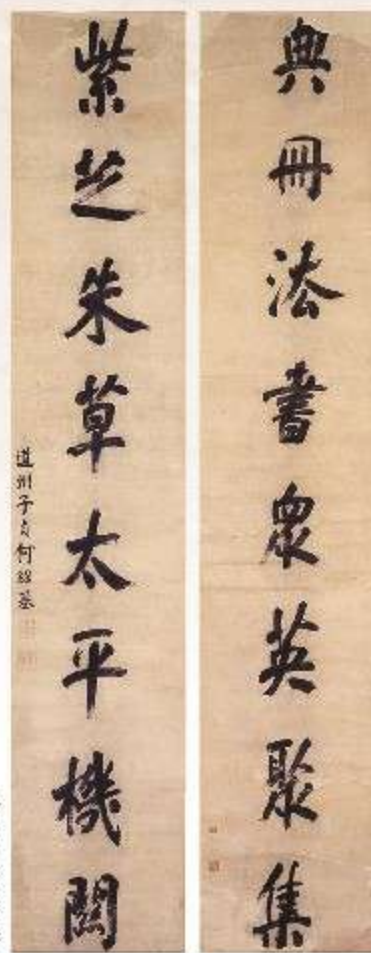 典冊法書衆英聚集
紫芝朱草太平機關
道州子貞何紹基